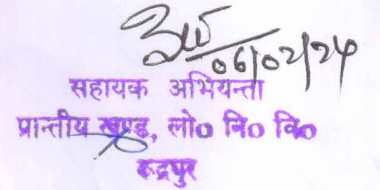 06/02/24
सहायक अभियन्ता
प्रान्तीय खण्ड, लो० नि० वि०
रूद्रपुर